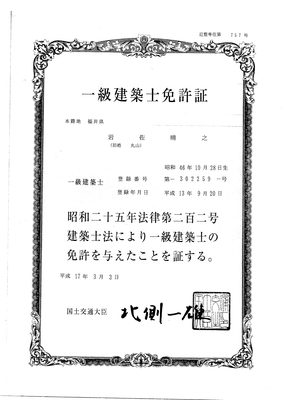 一級建築士免許証
本籍地 福井県
岩佐 晴之
(旧姓 丸山)
昭和 46年10月28日生
一級建築士
登録番号 第一302259一号
登録年月日 平成 13年 9月20日
昭和二十五年法律第二百二号
建築士法により一級建築士の
免許を与えたことを証する。
平成 17年 3月 3日
国土交通大臣 北側一雄